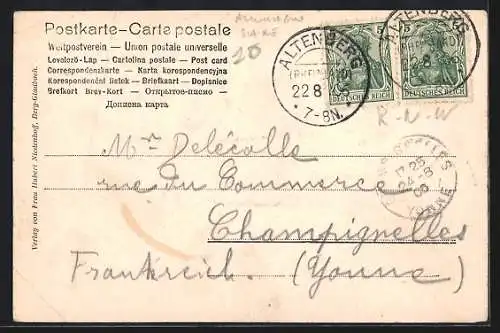 Postkarte – Carta postale
Weltpostverein — Union postale universelle
Levelező-Lap — Cartolina postale — Post card
Correspondenzkarte — Karta korespondencyjna
Korespondenční lístek — Briefkaart — Dopisnice
Brefkort Brev-Kort — Открытое-письмо —
Дописна карта.
20
ALTENBERG
(RHEINLAND)
22 8
* 7-8N. *
5 5
DEUTSCHES REICH
ALTENBERG
22.8
5
DEUTSCHES REICH
R-N-W
CHAMPIGNELLES
17 25
24 -8
YONNE
Mr Delécolle
rue du Commerce
Champignelles
Frankreich. (Yonne)
Verlag von Franz Hubert Niedenhoff, Berg-Gladbach.